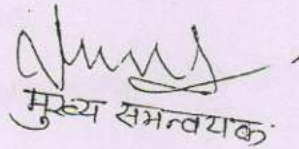 मुख्य समन्वयक